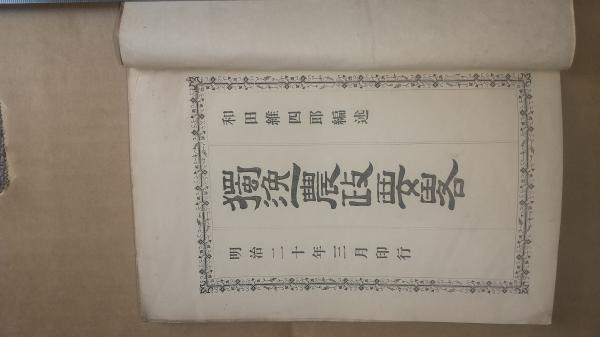 和田維四郎編述
獨逸農政要畧
明治二十年三月印行